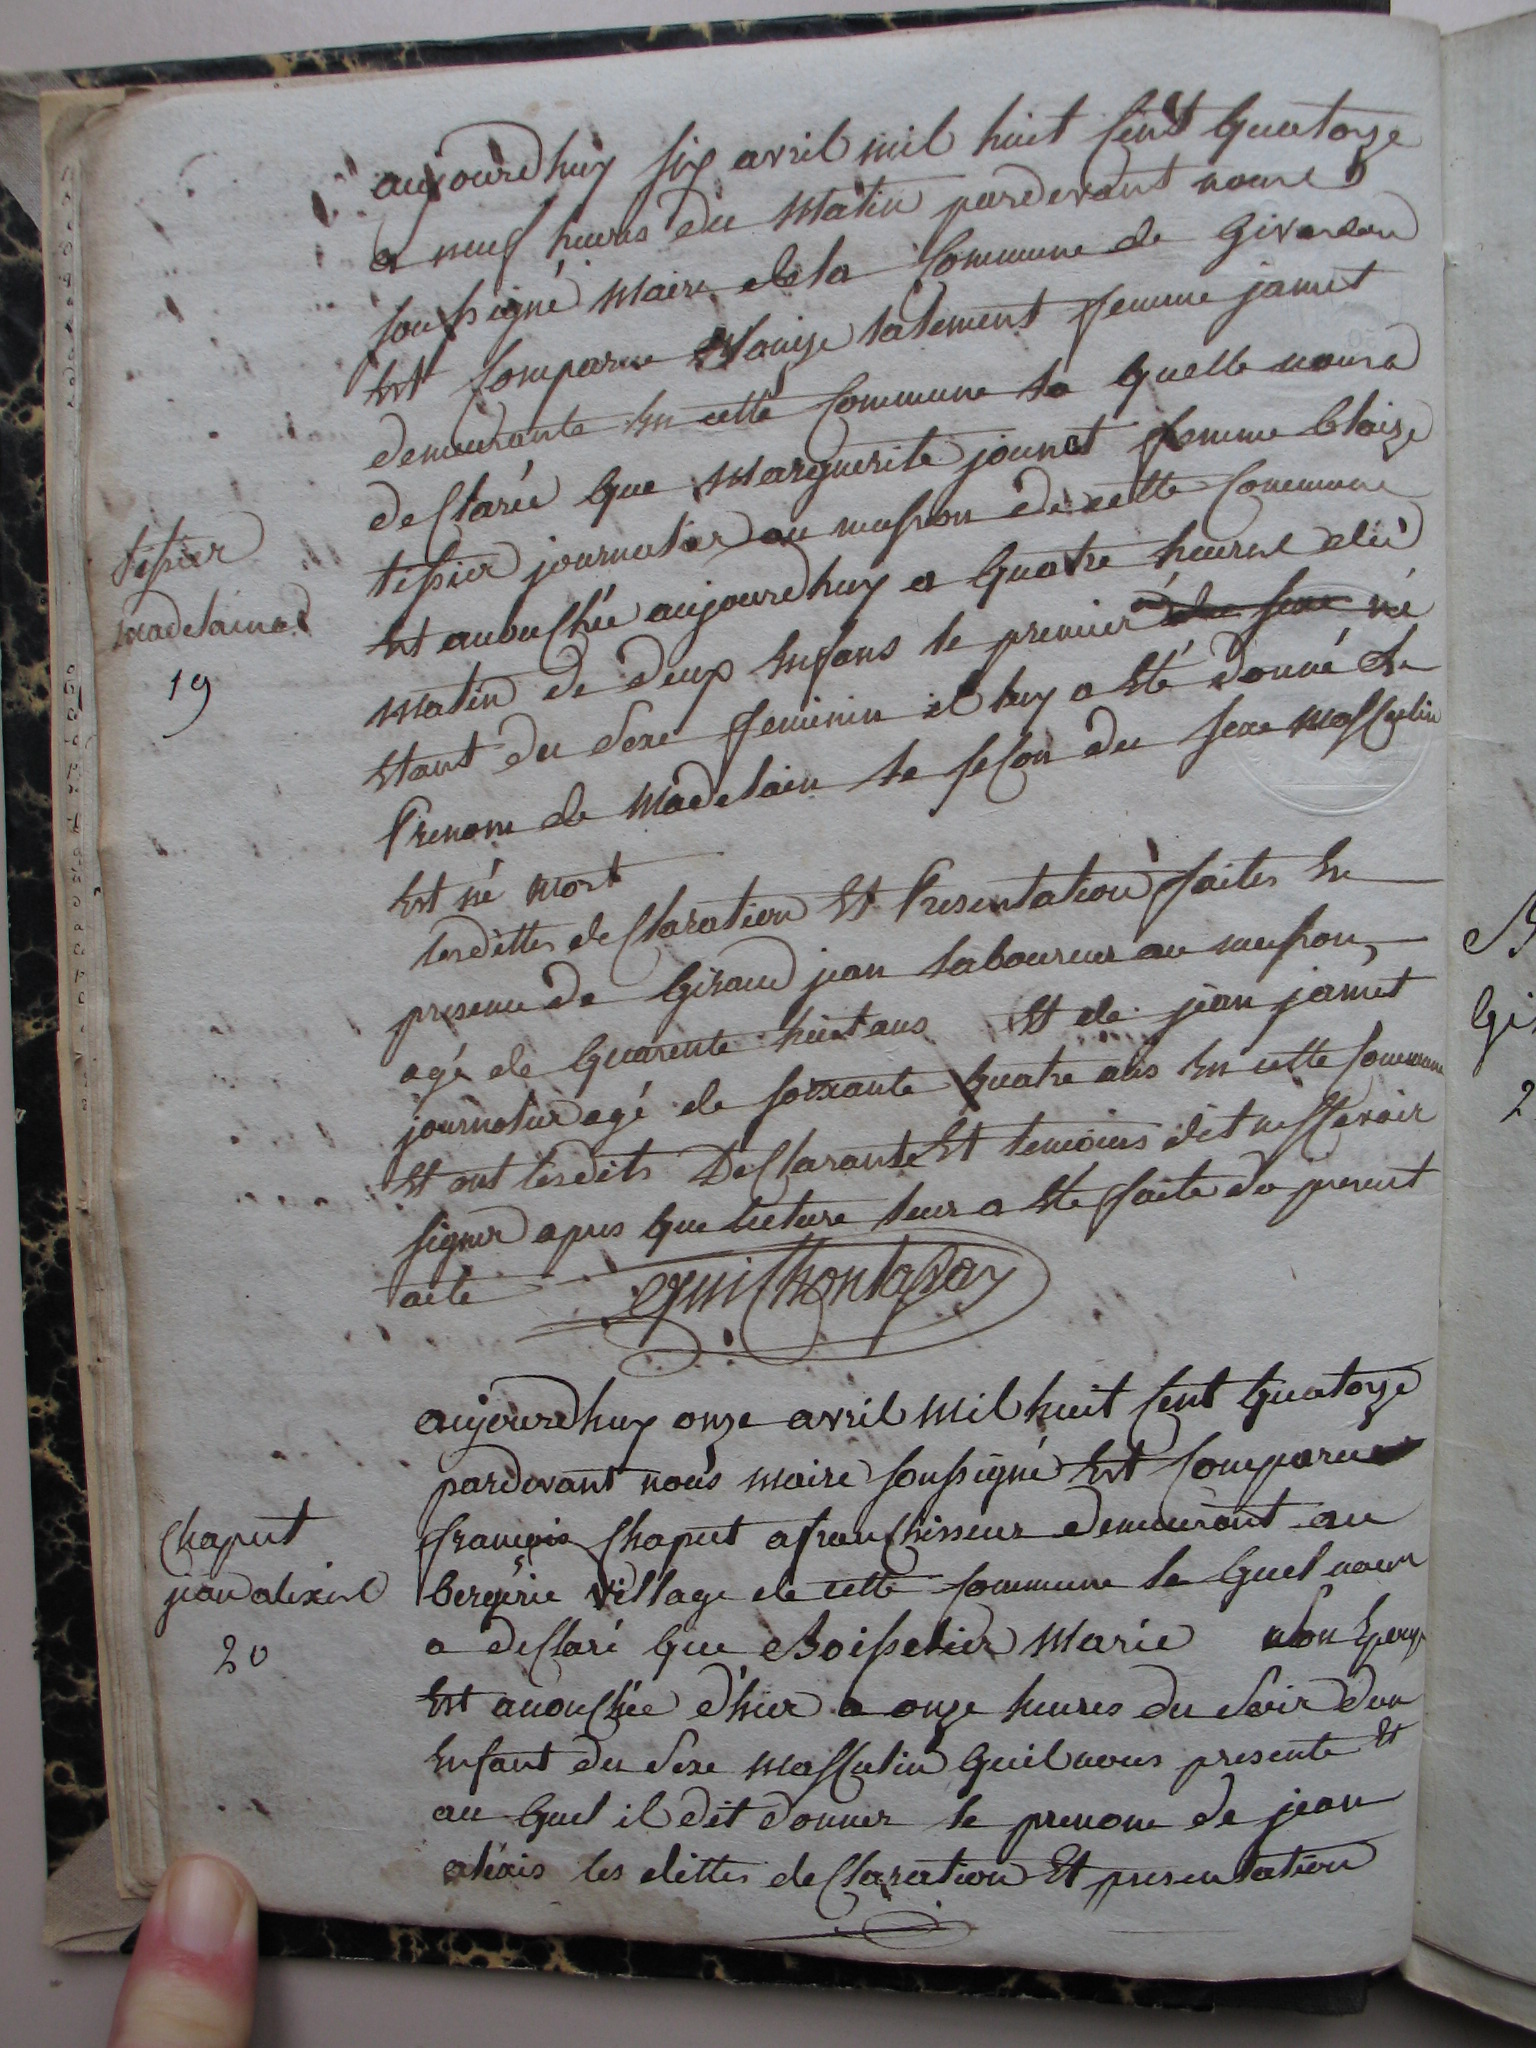 aujourdhuy six avril mil huit cent quatorze
a neuf heures du matin pardevant nous
soussigné maire de la commune de Givardon
est comparue louize talement femme jamet
demeurante en cette commune la quelle nous a
desclarée que marguerite jounet femme blaize
tissier journalier au musron de cette commune
est acouschée aujourdhuy a quatre heures du
matin de deux enfans le premier né
etant du sexe feminin il luy a été donné le
prenom de madelain le second du sexe masculin
est né mort
lesdittes desclaration et presentation faites en
presence de Giraud jean laboureur au musron
agé de quarente huit ans et de jean jamet
journalier agé de soixante quatre ans en cette commune
et ont lesdits desclarante et temoins dit ne scavoir
signer apres que lecture leur a été faite du present
acte
tissier
madelaine
19
aujourdhuy onze avril mil huit cent quatorze
pardevant nous maire soussigné est comparu
françois chaput afranchisseur demeurant au
bergerie village de cette commune le quel nous
a desclaré que Boisselier marie son epouse
est acouschée d'hier a onze heures du soir d'un
enfant du sexe masculin quil nous presente et
au quel il dit donner le prenom de jean
alexis les dittes desclaration et presentation
chaput
jean alexis
20